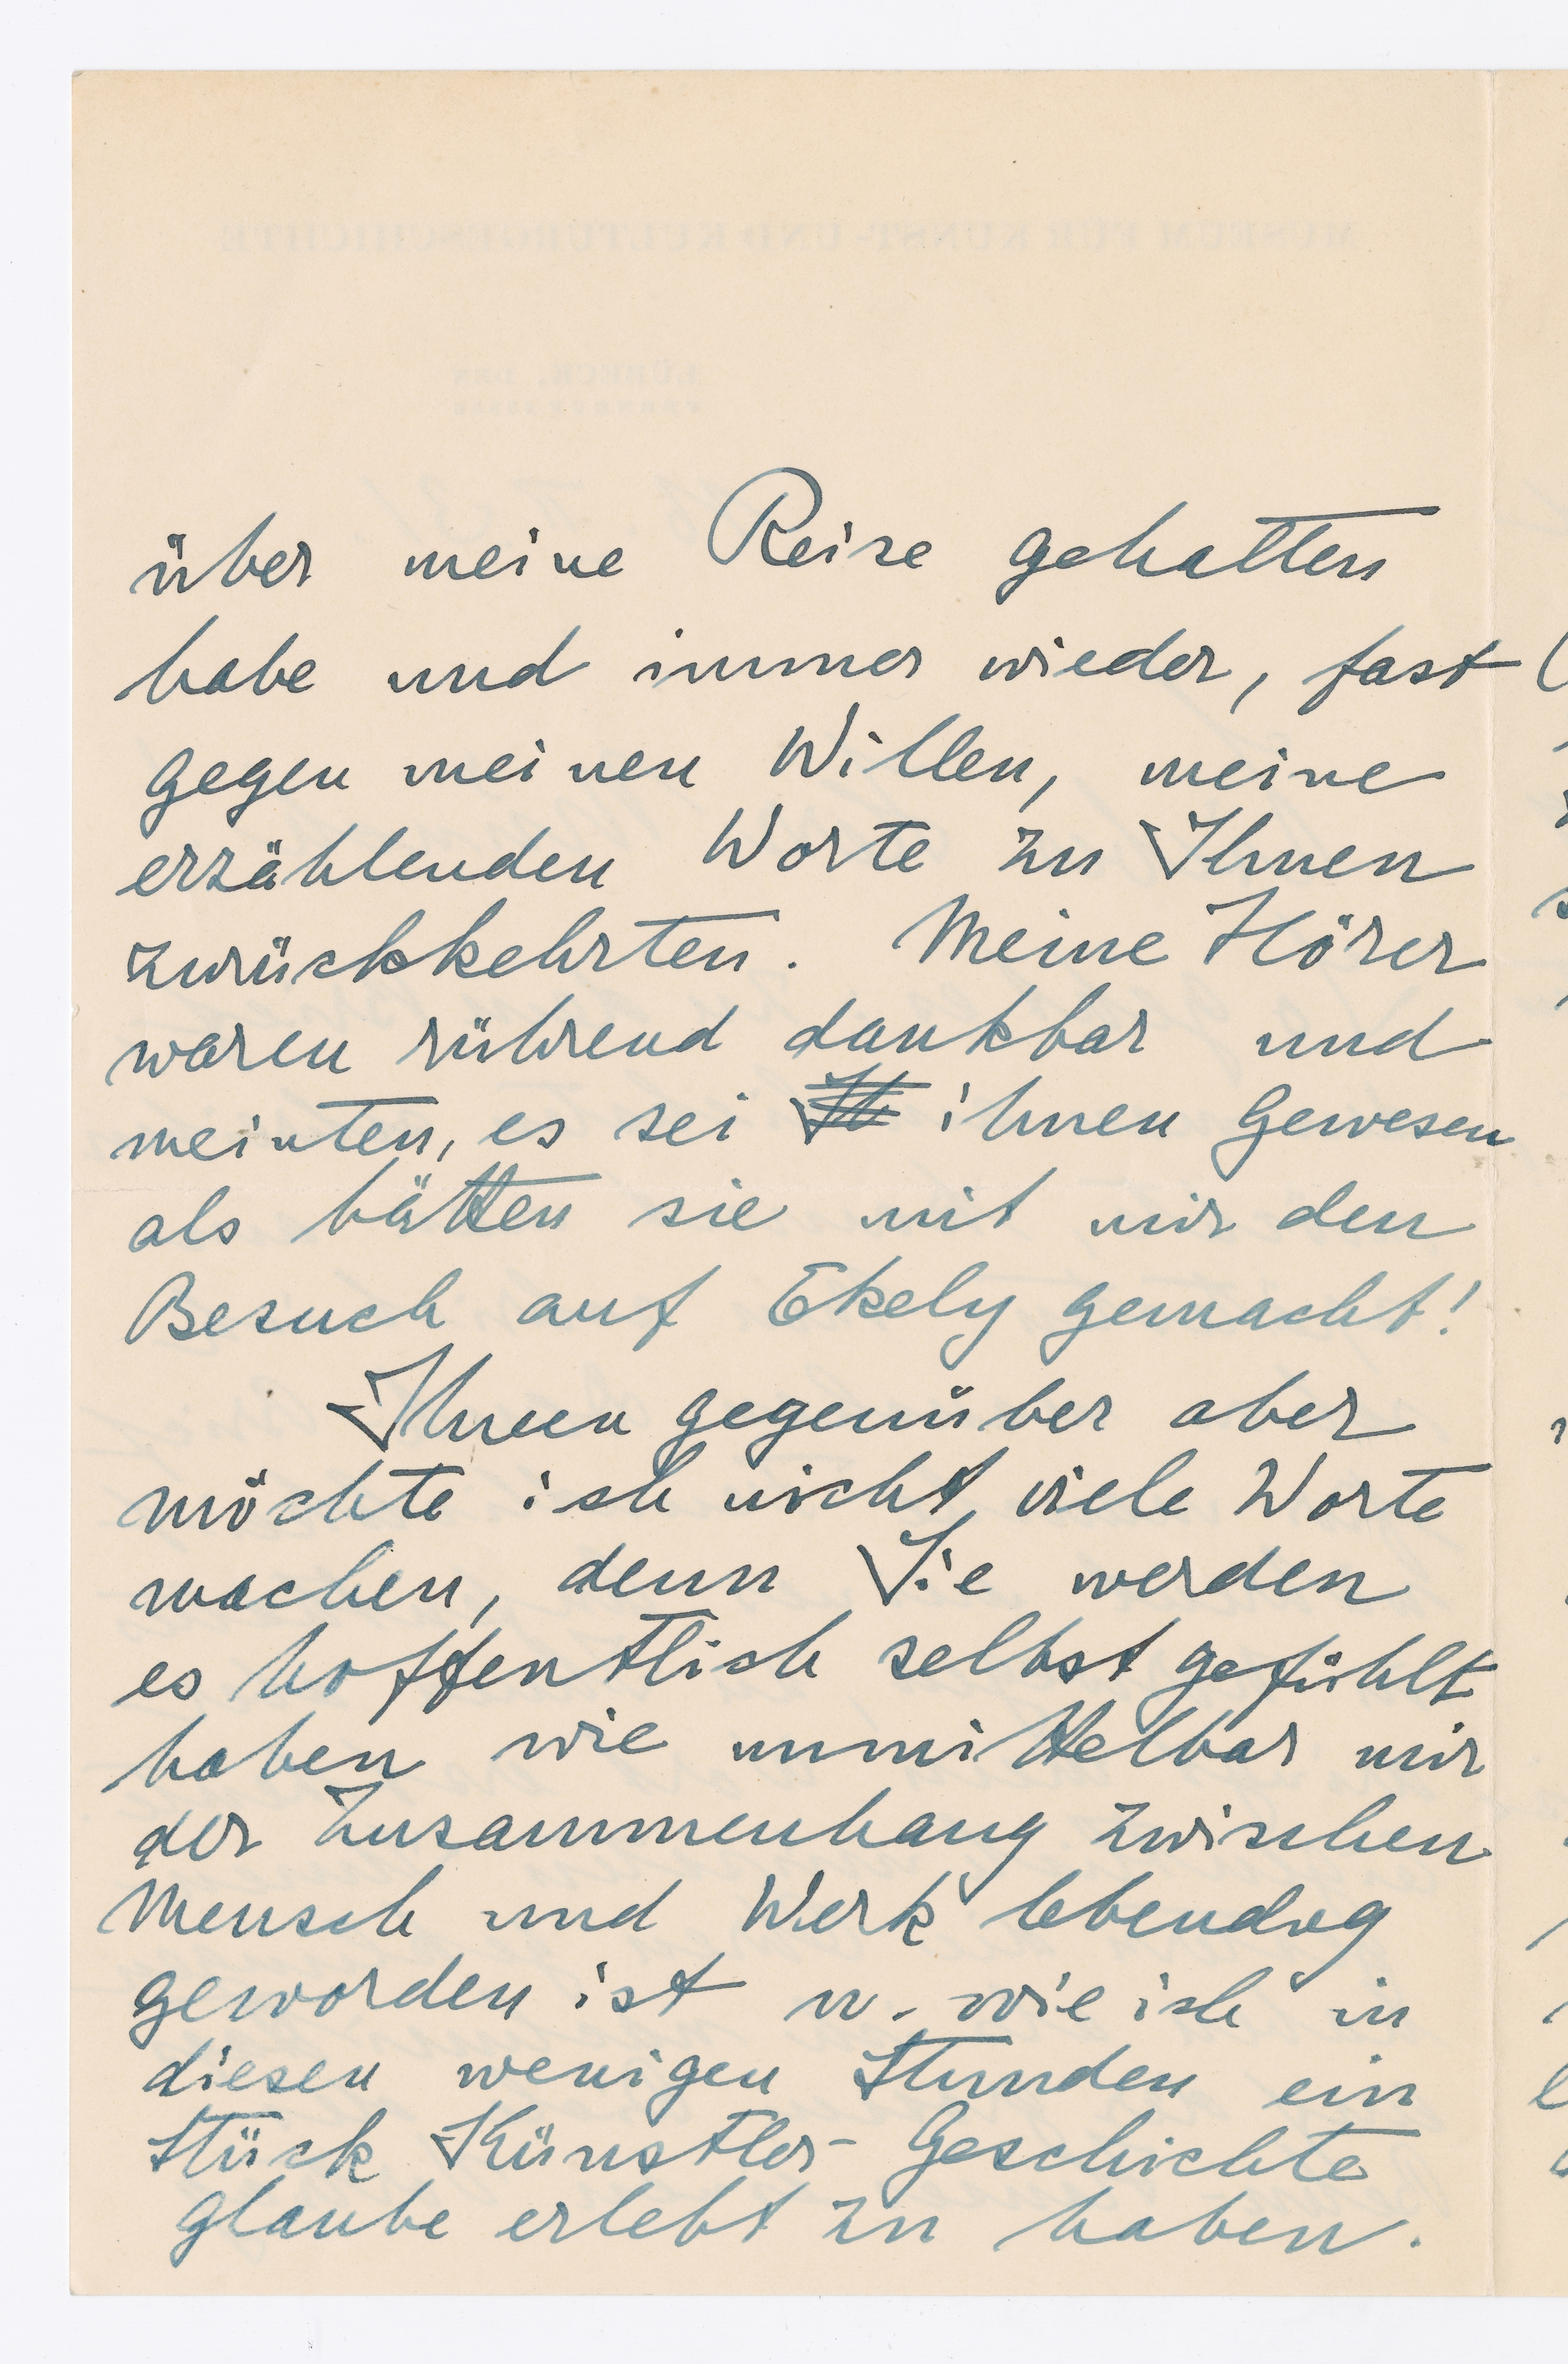 über meine Reise gehalten
habe und immer wieder, fast
gegen meinen Willen, meine
erzählenden Worte zu Ihnen
zurückkehrten. Meine Hörer
waren rührend dankbar und
meinten, es sei ihnen gewesen
als hätten sie mit mir den
Besuch auf Ekely gemacht!
Ihnen gegenüber aber
möchte ich nicht viele Worte
machen, denn Sie werden
es hoffentlich selbst gefühlt
haben wie unmittelbar mir
der Zusammenhang zwischen
Mensch und Werk lebendig
geworden ist u. wie ich in
diesen wenigen Stunden ein
Stück Künstler-Geschichte
glaube erlebt zu haben.